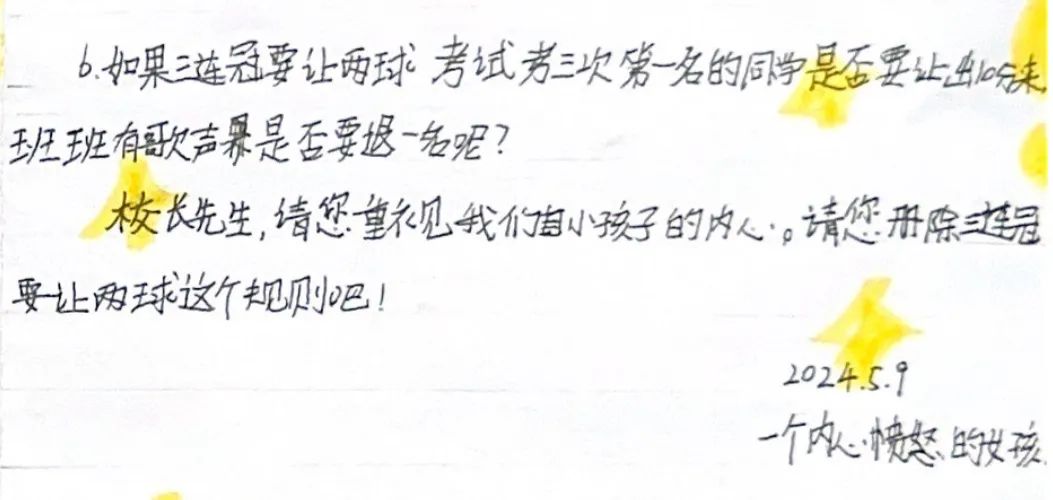 6.如果三连冠要让两球 考试考三次第一名的同学是否要让出10分来,
班班有歌声是否要退一名呢?
校长先生,请您重视我们小孩子的内心。请您册除三连冠
要让两球这个规则吧!
2024.5.9
一个内心愤怒的女孩